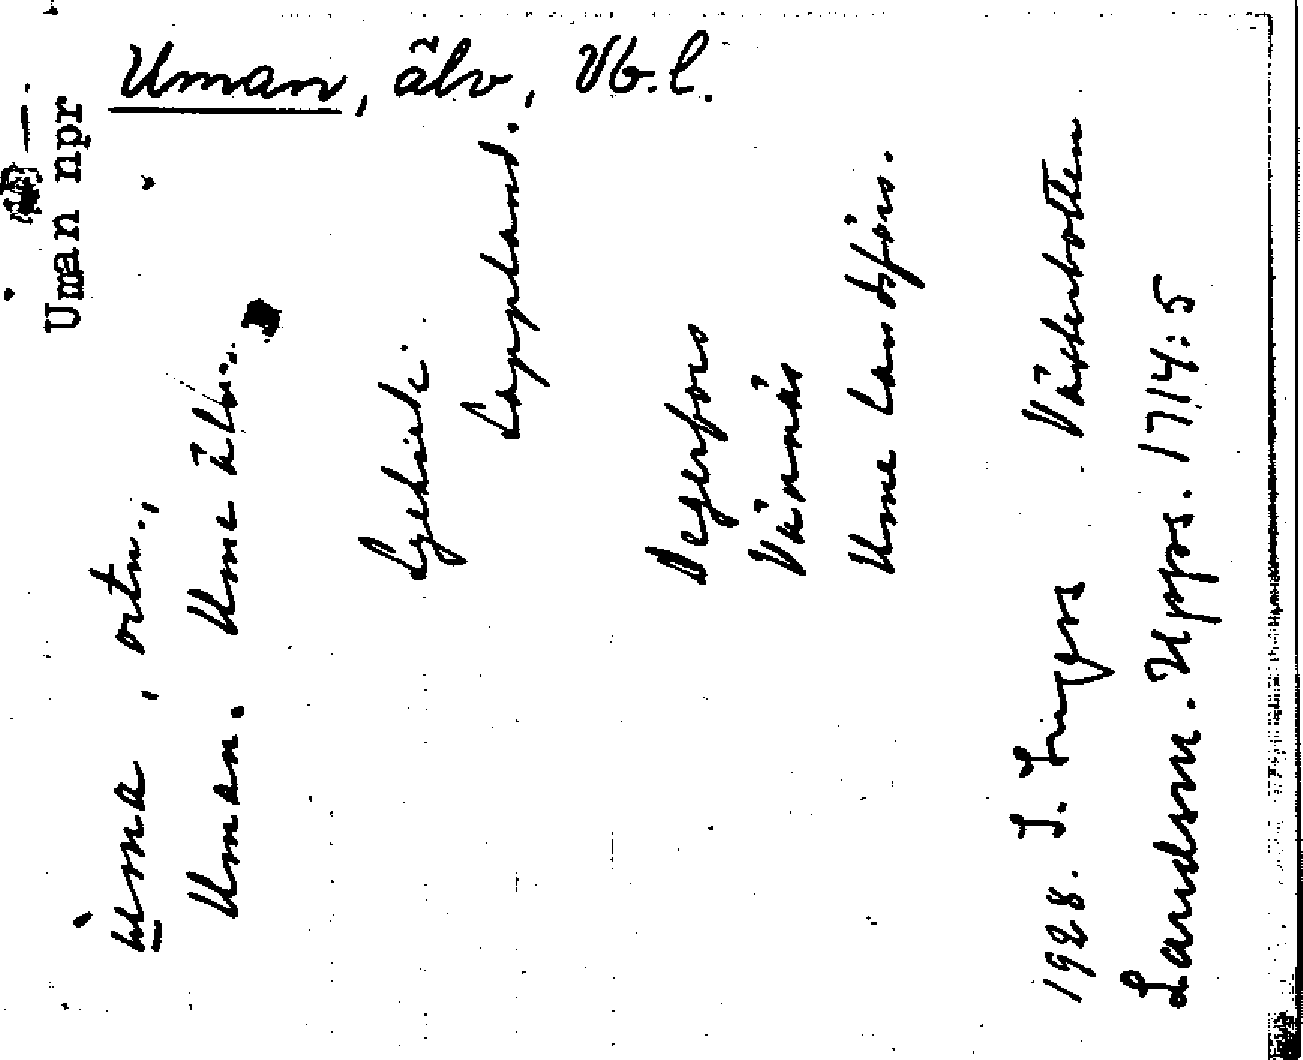 Uman, älv, Vb.l.
Uman npr
uma, ortn.,
Uman. Ume älv.
Lycksele
Lappland.
Degerfors
Vännäs
Ume landsförs.
1928. Västerbotten
Landsm. Upps. 1714:5